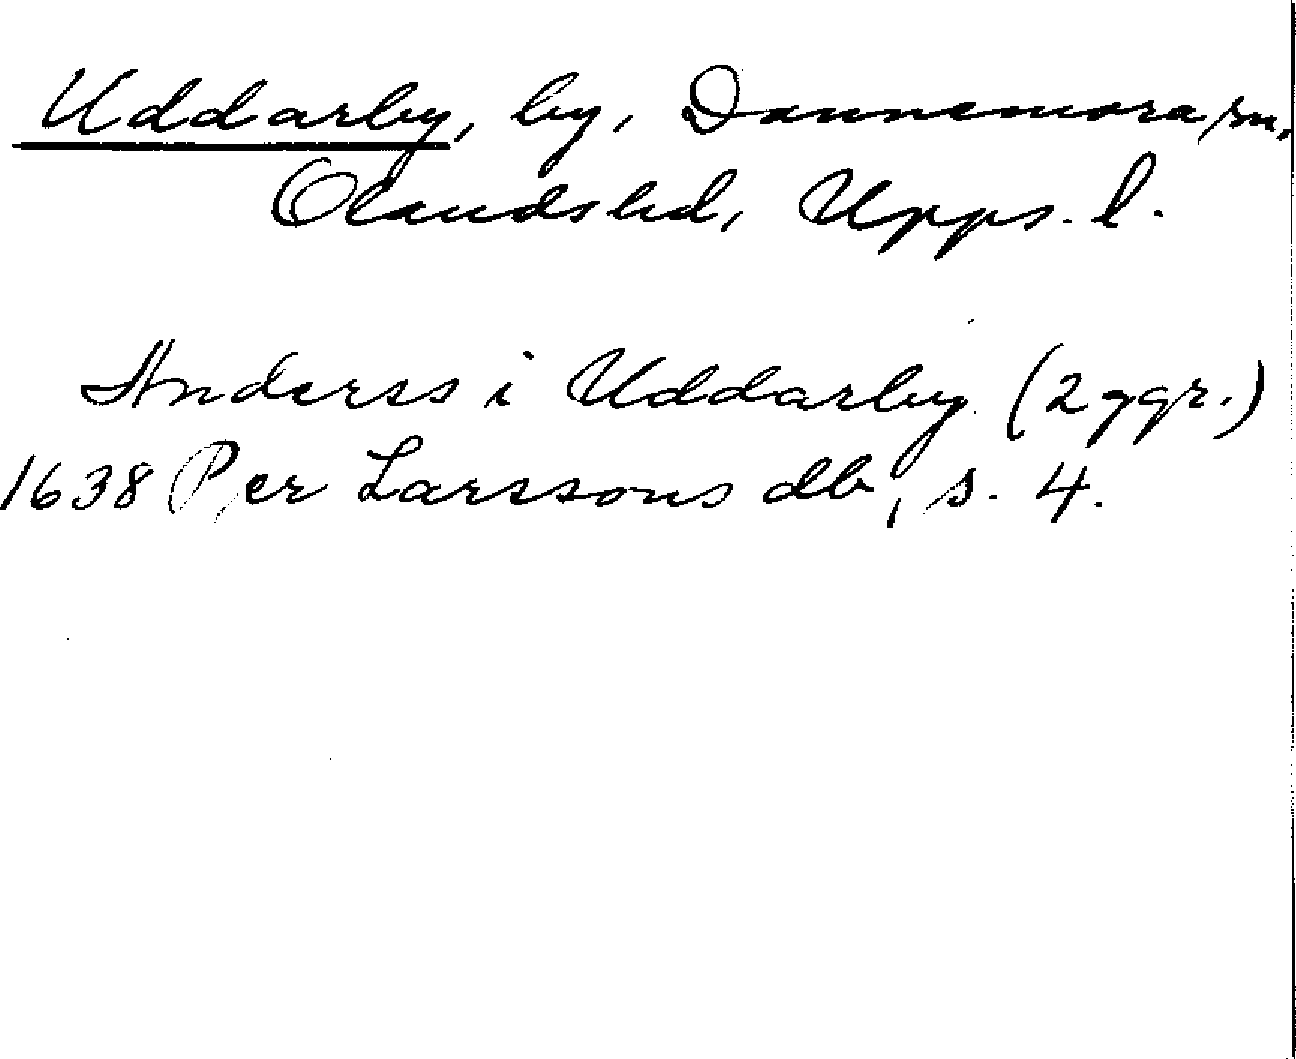 Uddarby, by, Dannemora sn,
Olands hd, Upps. l.
Anderss i Uddarby (2 ggr.)
1638 Per Larssons db, s. 4.